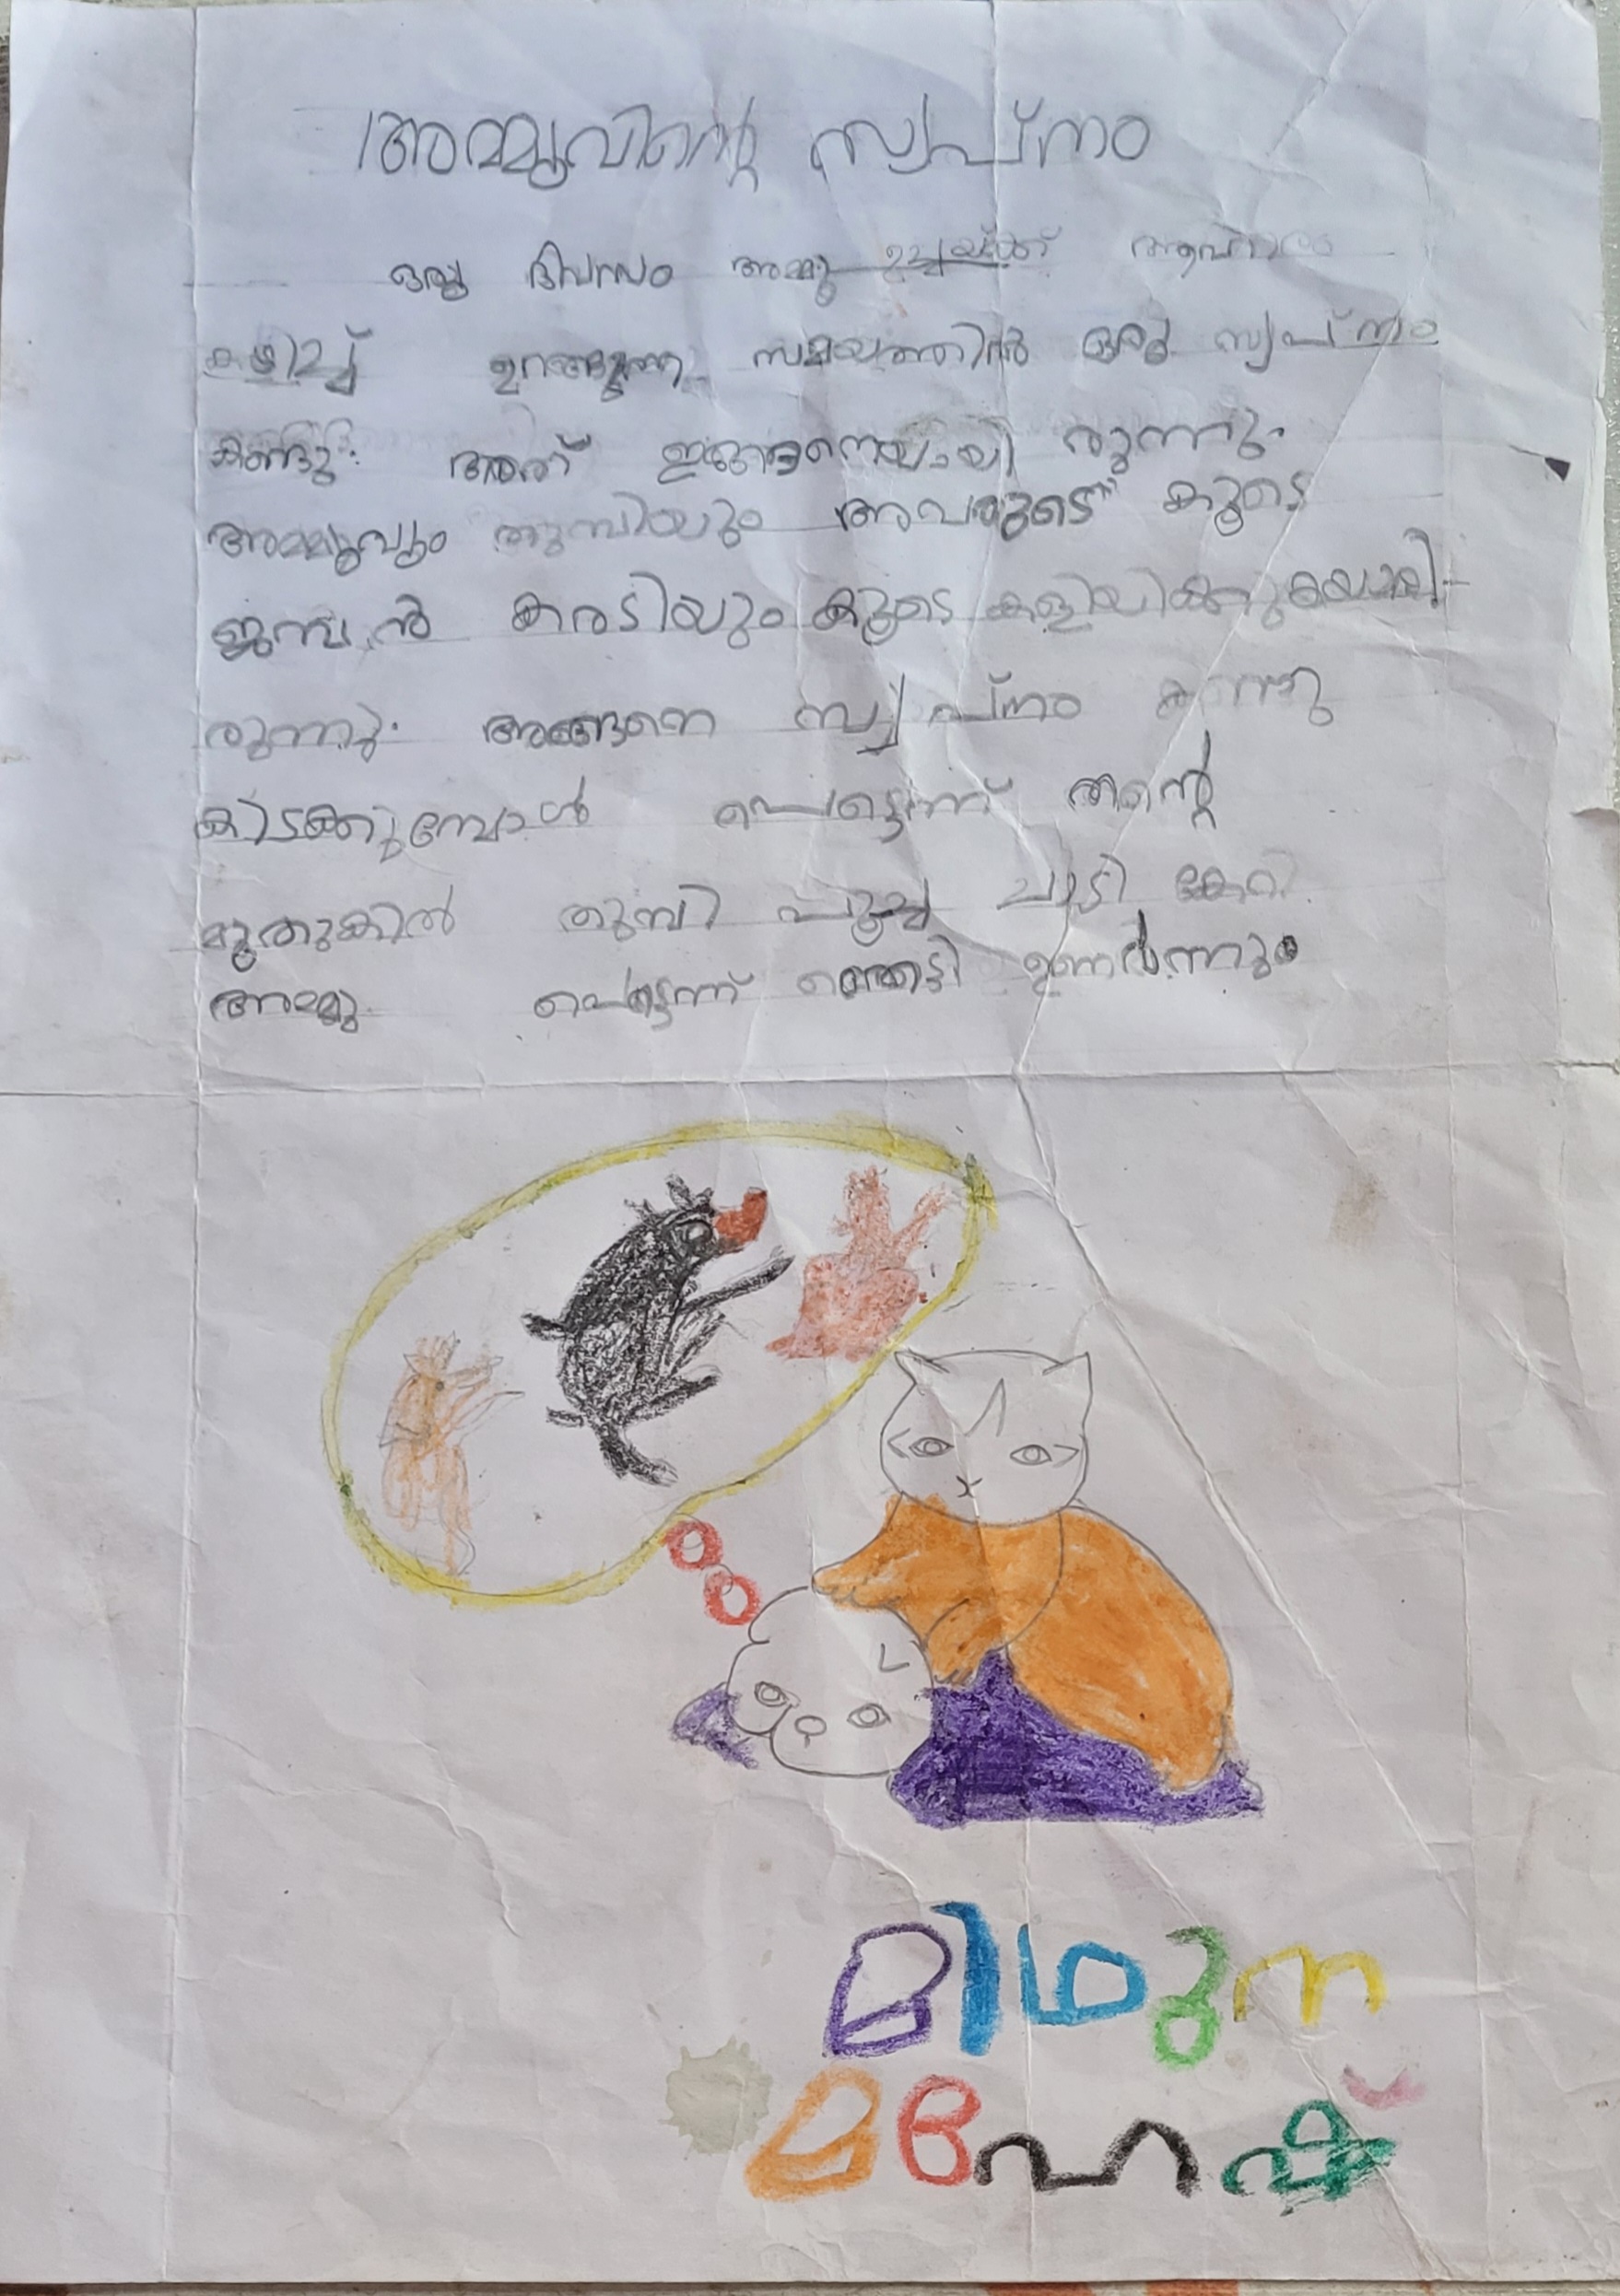 അമ്മുവിന്റെ സ്വപ്നം
ഒരു ദിവസം അമ്മു ഉച്ചയ്ക്ക് ആഹാരം
കഴിച്ച് ഉറങ്ങുന്ന സമയത്തിൽ ഒരു സ്വപ്നം
കണ്ടു. അത് ഇങ്ങനെയായി രുന്നു.
അമ്മുവും തുമ്പിയും അവരുടെ കൂടെ
ജുമ്പൻ കരടിയും കൂടെ കളിയിക്കുകയായി-
രുന്നു. അങ്ങനെ സ്വപ്നം കണ്ടു
കിടക്കുമ്പോൾ പെട്ടെന്ന് തന്റെ
മുതുകിൽ തുമ്പി പൂച്ച ചാടി കേറി.
അമ്മു പെട്ടന്ന് ഞെട്ടി ഉണർന്നു.
മിഥുന
മഹേഷ്